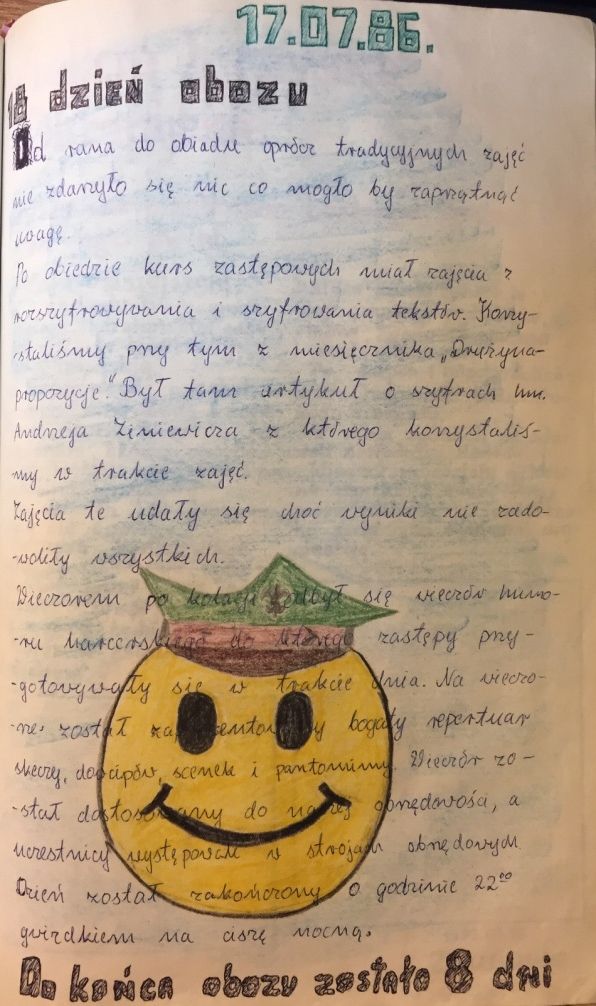 17.07.86.
18 dzień obozu
Od rana do obiadu oprócz tradycyjnych zajęć
nie zdarzyło się nic co mogło by zaprzątnąć
uwagę.
Po obiedzie kurs zastępowych miał zajęcia z
rozszyfrowywania i szyfrowania tekstów. Korzy-
-staliśmy przy tym z miesięcznika „Drużyna-
propozycje". Był tam artykuł o szyfrach hm.
Andrzeja Ziniewicza z którego korzystaliś-
my w trakcie zajęć.
Zajęcia te udały się choć wyniki nie zado-
-woliły wszystkich.
Wieczorem po kolacji odbył się wieczór humo-
-ru harcerskiego do którego zastępy przy-
-gotowywały się w trakcie dnia. Na wieczo-
-rze został zaprezentowany bogaty repertuar
skeczy, dowcipów, scenek i pantomimy. Wieczór zo-
-stał dostosowany do naszej obrzędowości, a
uczestnicy występowali w strojach obrzędowych.
Dzień został zakończony o godzinie 22⁰⁰
gwizdkiem na ciszę nocną.
Do końca obozu zostało 8 dni